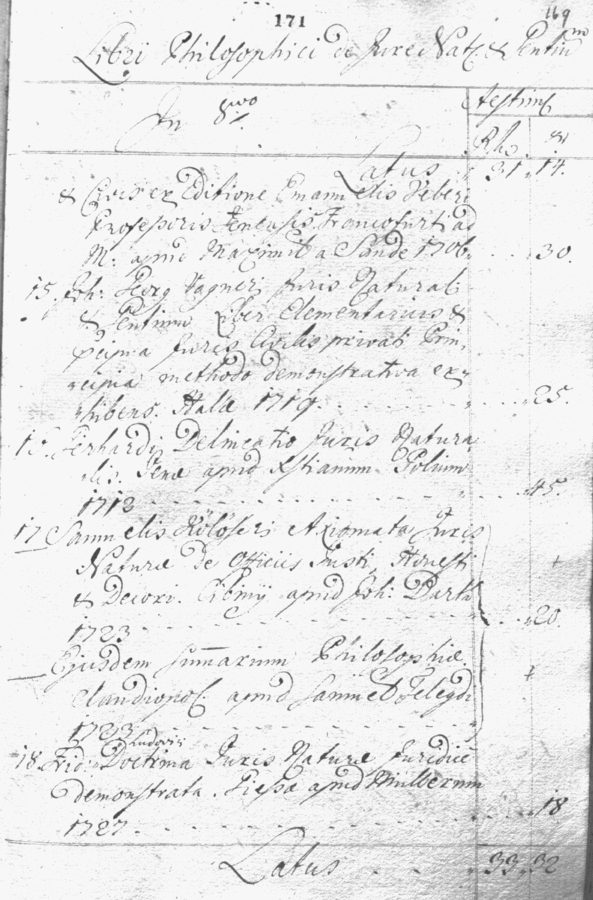 171
169
Libri Philosophici de Jure Nat: & Gentium
In 8vo
Aestim:
Rh.
Latus . 31 . 14.
& Cives ex Editione Emanuelis Veberi
Professoris Jenensis. Francofurti ad
M. apud Maximil: a Sande 1706. . . . 30.
15. Joh: Georg Vagneri Juris Natural:
& Gentium Liber Elementarius &
Juris Civilis privati Prin,
cipia methodo demonstrativa ex,
hibens. Hala 1719. . . . 25.
Gerhardi Delineatio Juris Natura
lis. Jenæ apud Polium
1712 . . . 45.
17 Samuelis Köloseri Axiomata Juris
Naturæ de Officiis Justi, Honesti
& Decori. Cibinij apud Joh: Barth
1723 . . . 20.
Ejusdem Summarium Philosophiæ.
Claudiopol: apud Samuel Telegdi
1723
18. Frid: Ludovici Doctrina Juris Naturæ Juridice
demonstrata. apud Müllerum
1727. . . . 18
Latus . . . 33. 32